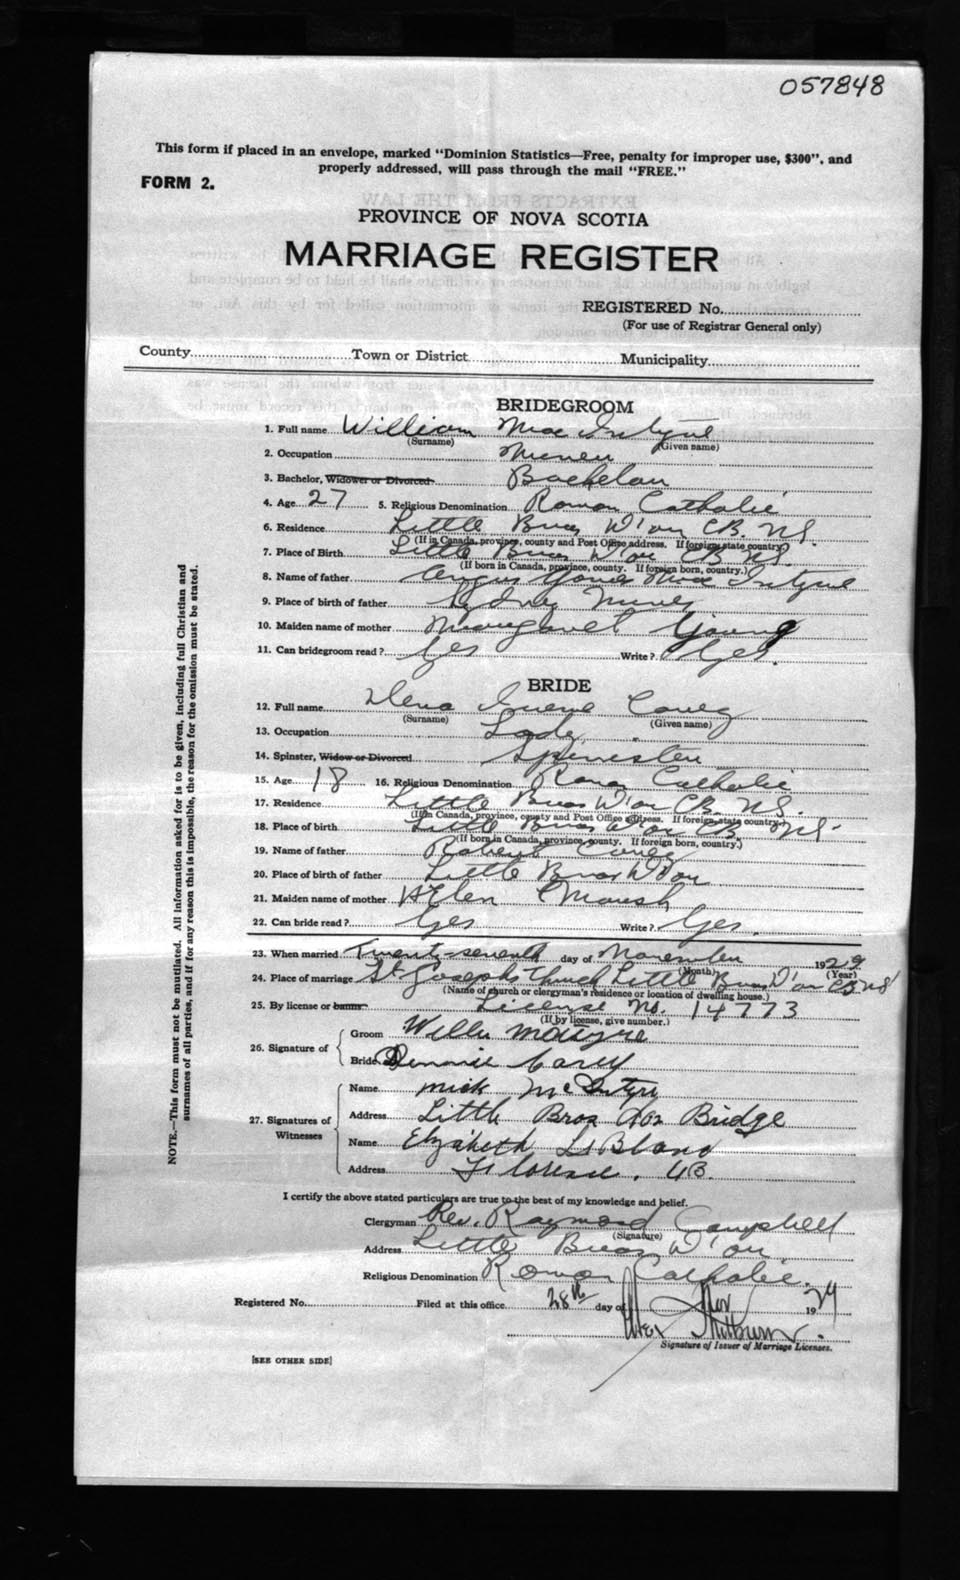 057848
This form if placed in an envelope, marked "Dominion Statistics—Free, penalty for improper use, $300", and
properly addressed, will pass through the mail "FREE."
FORM 2.
PROVINCE OF NOVA SCOTIA
MARRIAGE REGISTER
REGISTERED No.
(For use of Registrar General only)
County Town or District Municipality
BRIDEGROOM
1. Full name William Mac Intyre
(Surname) (Given name)
2. Occupation Miner
3. Bachelor, Widower or Divorced Bachelor
4. Age 27 5. Religious Denomination Roman Catholic
6. Residence Little Bras D'or CB. NS.
(If in Canada, province, county and Post Office address. If foreign state country)
7. Place of Birth Little Bras D'or CB NS.
(If born in Canada, province, county. If foreign born, country.)
8. Name of father Angus Mac Intyre
9. Place of birth of father Sydney Mines
10. Maiden name of mother Margaret Young
11. Can bridegroom read? Yes Write? Yes.
BRIDE
12. Full name Carey
(Surname) (Given name)
13. Occupation Lady
14. Spinster, Widow or Divorced Spinster
15. Age 18 16. Religious Denomination Roman Catholic
17. Residence Little Bras D'or CB. NS.
(If in Canada, province, county and Post Office address. If foreign, state country)
18. Place of birth Little Bras D'or CB NS.
(If born in Canada, province, county. If foreign born, country.)
19. Name of father Robert Carey
20. Place of birth of father Little Bras D'or
21. Maiden name of mother Helen Marsh
22. Can bride read? Yes Write? Yes.
23. When married Twenty seventh day of November 1929
(Month) (Year)
24. Place of marriage St. Josephs Church Little Bras D'or CB NS
(Name of church or clergyman's residence or location of dwelling house.)
25. By license or banns License No. 14773
(If by license, give number.)
26. Signature of
Groom Willie McIntyre
Bride Dennie Carey
27. Signatures of Witnesses
Name Mick McIntyre
Address Little Bras Dor Bridge
Name Elizabeth LeBlanc
Address Florence. CB.
I certify the above stated particulars are true to the best of my knowledge and belief.
Clergyman Rev. Raymond Campbell
(Signature)
Address Little Bras D'or
Religious Denomination Roman Catholic.
Registered No. Filed at this office 28th day of Nov 1929
Signature of Issuer of Marriage Licenses.
[SEE OTHER SIDE]
NOTE.—This form must not be mutilated. All information asked for is to be given, including full Christian and
surnames of all parties, and if for any reason this is impossible, the reason for the omission must be stated.